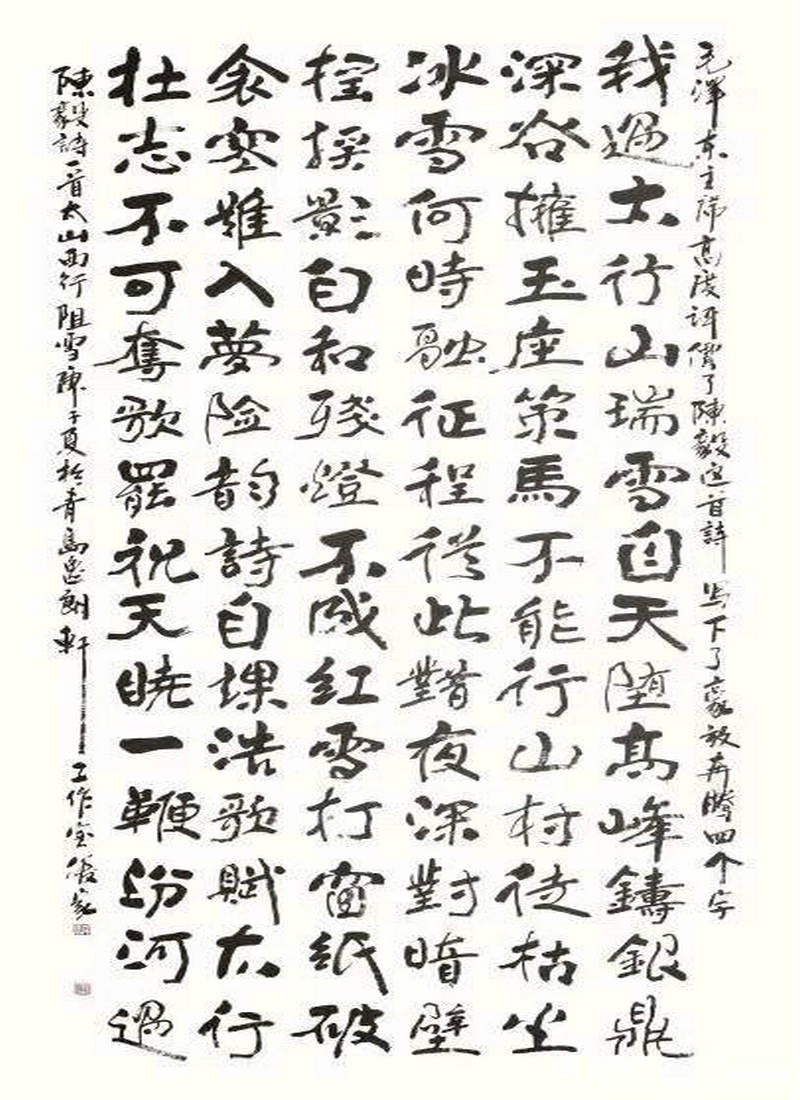 毛澤东主席高度評價了陳毅这首詩 写下了豪放奔腾四个字
我過太行山瑞雪自天堕高峰鑄銀鼎
深谷擁玉座策馬不能行山村徒枯坐
冰雪何時融征程從此錯夜深對暗壁
摇摇影自和殘燈不成紅雪打窗紙破
衾寒難入夢险韵詩自課浩歌賦太行
壮志不可奪歌罷祝天曉一鞭汾河過
陳毅詩一首太山西行阻雪陳子夏於青島朗軒 工作室